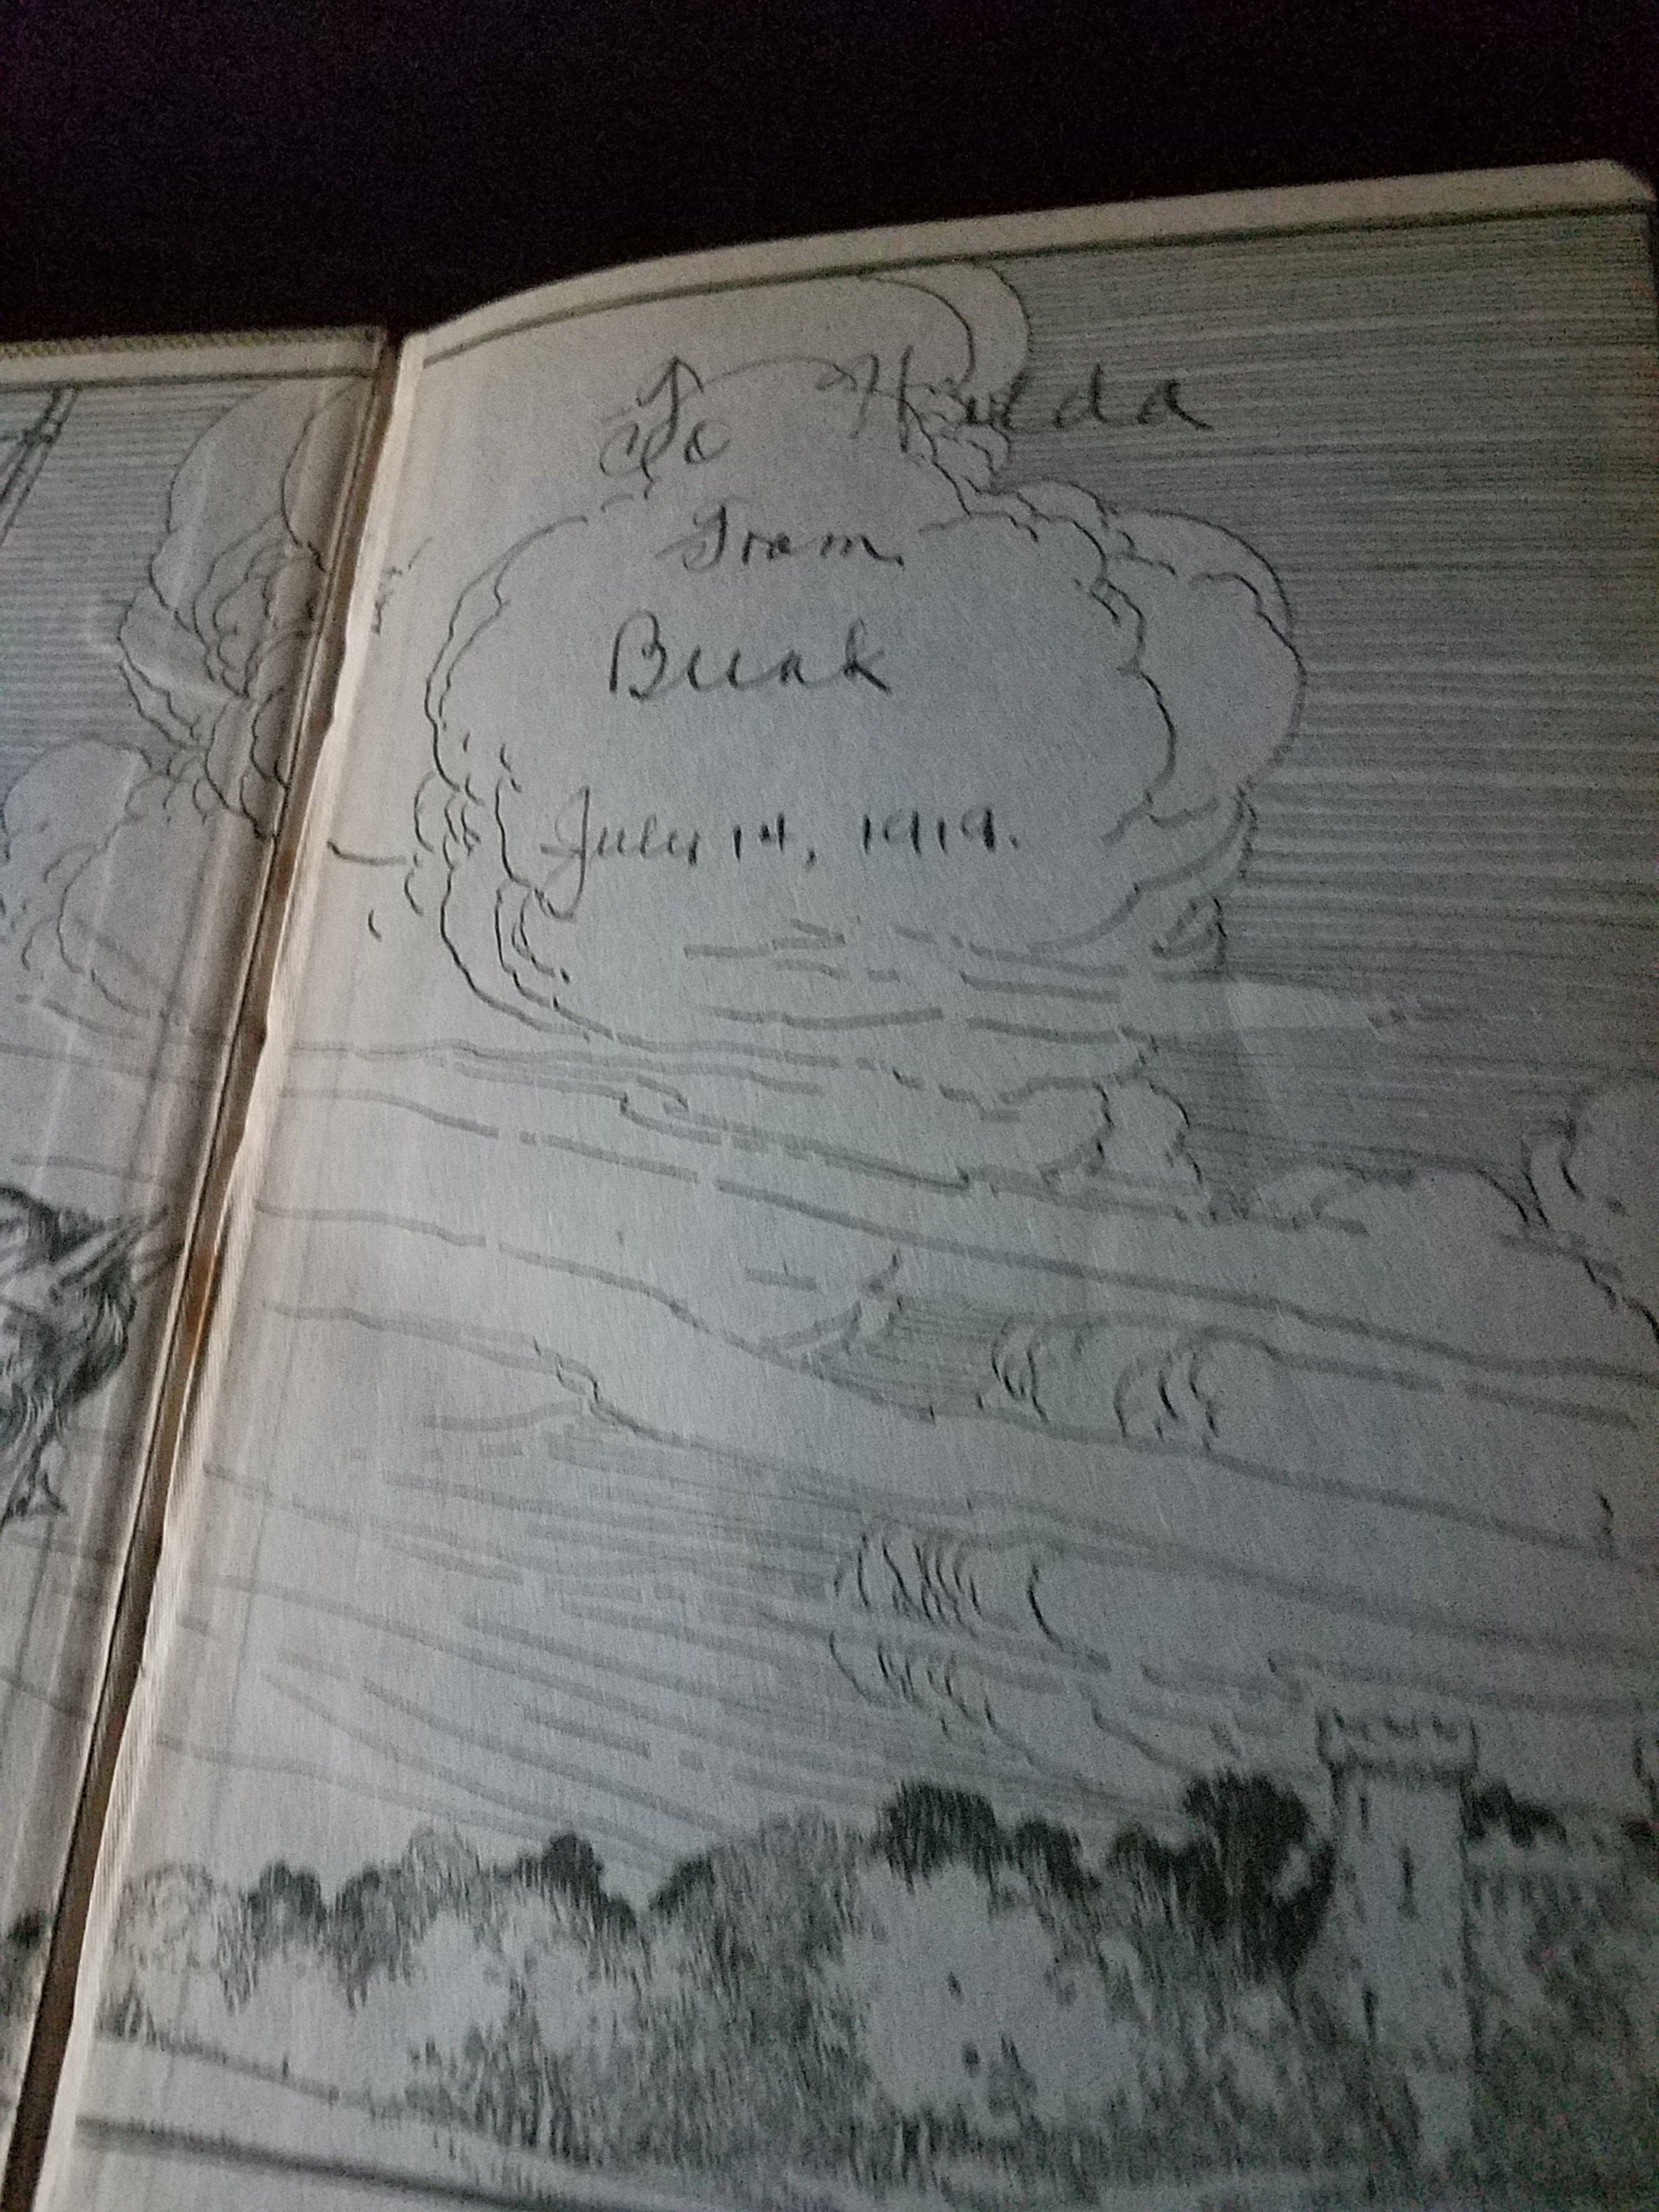 To Hulda
From
Bunk
July 14, 1919.